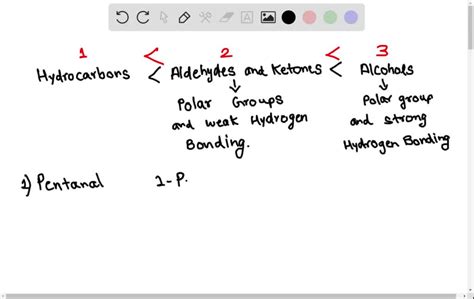 1 < 2 < 3
Hydrocarbons < Aldehydes and Ketones < Alcohols
↓ ↓
Polar Groups Polar group
and weak Hydrogen and strong
Bonding. Hydrogen Bonding
1) Pentanal 1-P.